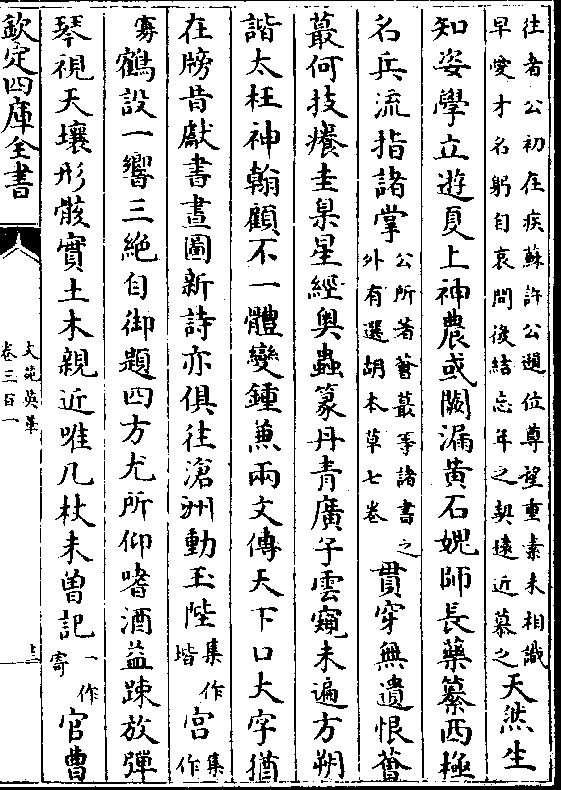 往者公初在疾蘇許公頲位尊望重素未相識
早愛才名躬自哀問後結忘年之契遠近慕之
天然生
知姿學立遊夏上神農或闕漏黃石媿師長藥纂西極
名兵流指諸掌
公所著薈蕞等諸書之
外有選胡本草七卷
貫穿無遺恨薈
蕞何技癢圭臬星經奥蟲篆丹青廣子雲窺未遍方朔
諧太枉神翰顧不一體變鍾兼兩文傳天下口大字猶
在牓昔獻書畫圖新詩亦俱往滄洲動玉陛
集作
堦
宫
集
作
寡
鶴設一響三絶自御題四方尤所仰嗜酒益踈放彈
琴視天壤形骸實土木親近唯几杖未曾記
一作
寄
官曹
欽定四庫全書
文苑英華
卷三百一